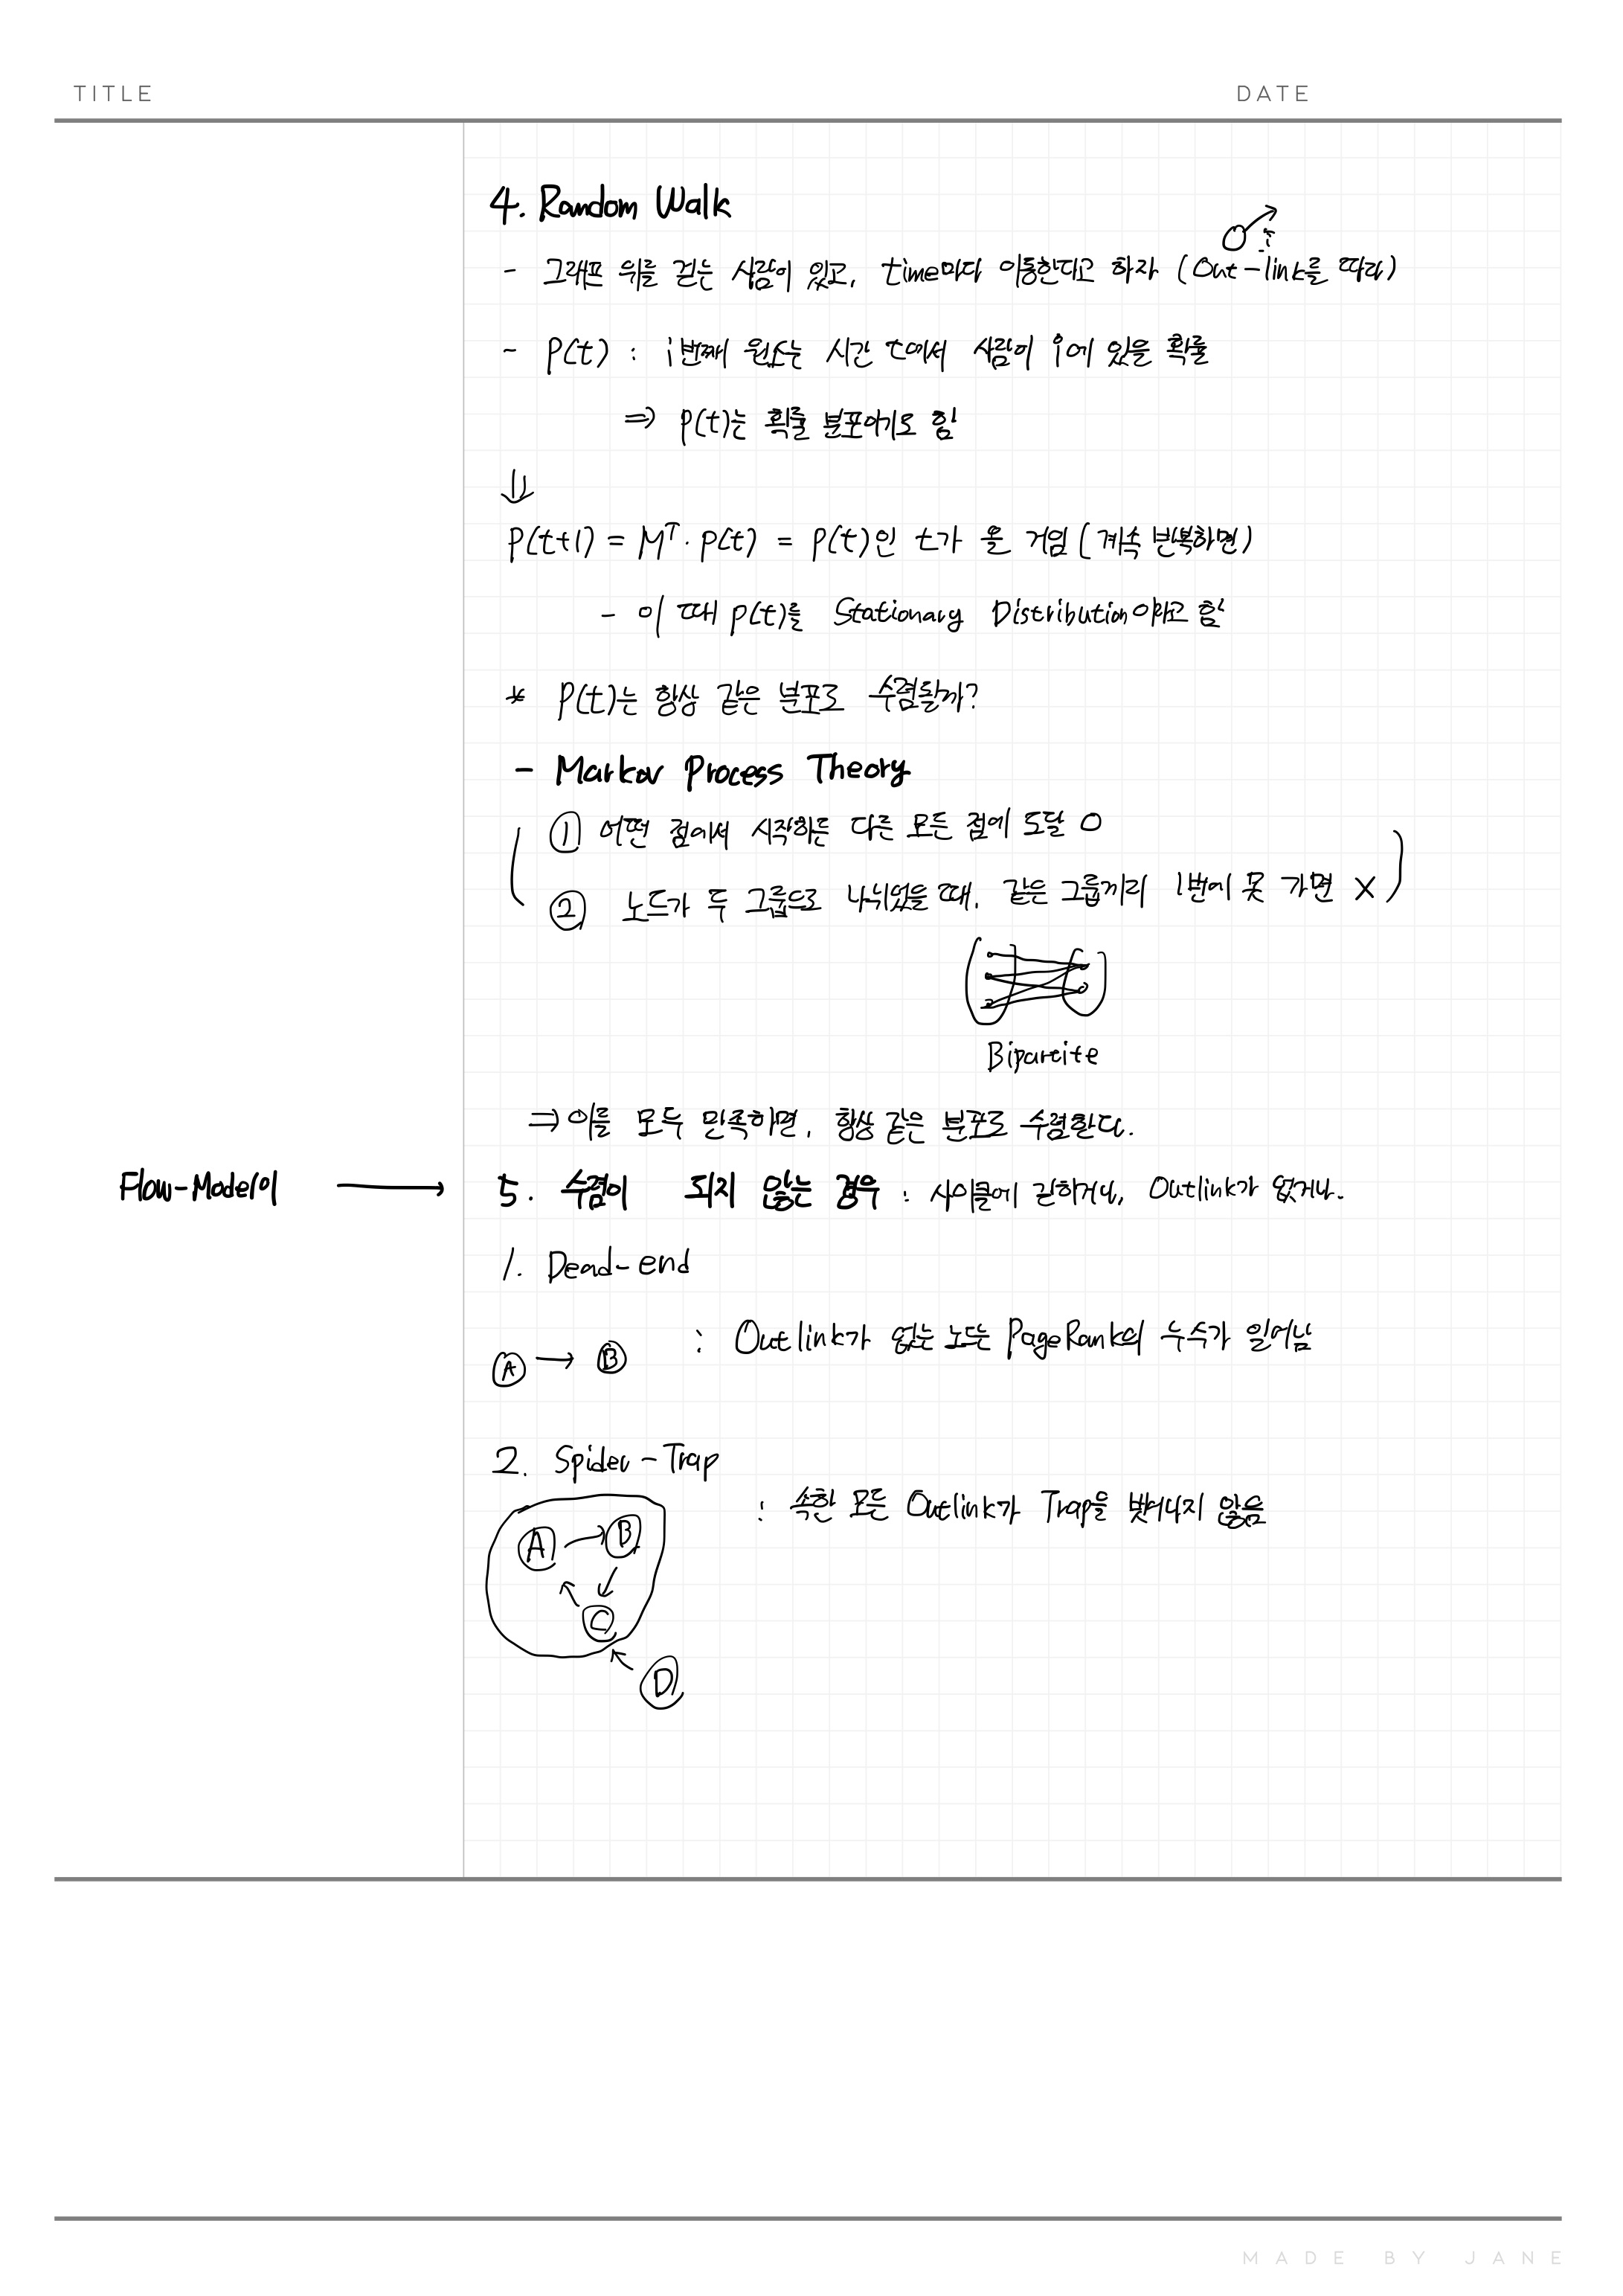 TITLE
DATE
4. Random Walk
- 그래프 위를 걷는 사람이 있고, time마다 이동한다고 하자 (Out-link를 따라)
i
- P(t) : i번째 원소는 시간 t에서 사람이 i에 있을 확률
⇒ P(t)는 확률 분포이기도 함
⇓
P(t+1) = M^T · P(t) = P(t)인 t가 올 거임 (계속 반복하면)
- 이 때 P(t)를 Stationary Distribution이라고 함
* P(t)는 항상 같은 분포로 수렴할까?
- Markov Process Theory
① 어떤 점에서 시작하든 다른 모든 점에 도달 O
② 노드가 두 그룹으로 나뉘었을 때, 같은 그룹끼리 1번에 못 가면 X
Bipartite
⇒ 이를 모두 만족하면, 항상 같은 분포로 수렴한다.
Flow-Model이 → 5. 수렴이 되지 않는 경우 : 사이클에 갇히거나, Outlink가 없거나.
1. Dead-end
A → B : Outlink가 없는 노드는 PageRank의 누수가 일어남
2. Spider-Trap
: 속한 모든 Outlink가 Trap을 벗어나지 않음
A → B
C
D
MADE BY JANE